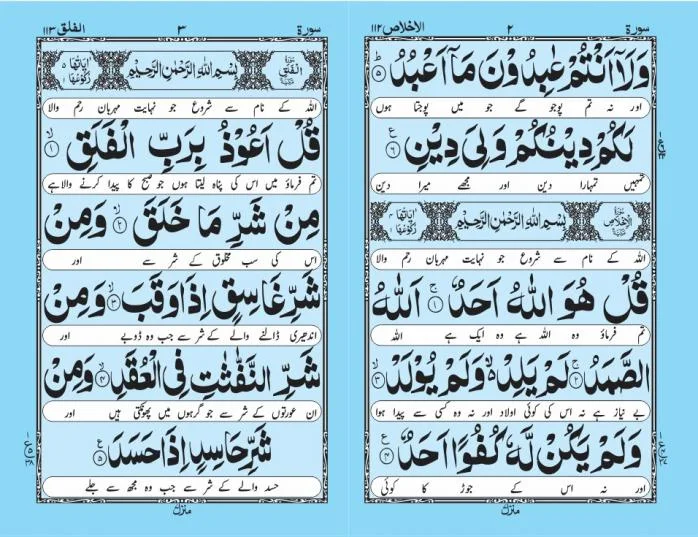 سورة ٢ الاخلاص ١١٢
وَلَاۤ اَنْتُمْ عٰبِدُوْنَ مَاۤ اَعْبُدُ ۵
اور نہ تم پوجو گے جو میں پوجتا ہوں
لَكُمْ دِيْنُكُمْ وَلِيَ دِيْنِ ۶
تمہیں تمہارا دین اور مجھے میرا دین
سورة الاخلاص مكية بِسْمِ اللّٰهِ الرَّحْمٰنِ الرَّحِيْمِ اٰیاتها ۴ رکوعها ۱
اللہ کے نام سے شروع جو نہایت مہربان رحم والا
قُلْ هُوَ اللّٰهُ اَحَدٌ ۱ اَللّٰهُ
تم فرماؤ وہ اللہ ہے وہ ایک ہے اللہ
الصَّمَدُ ۲ لَمْ يَلِدْ وَلَمْ يُوْلَدْ ۳
بے نیاز ہے نہ اس کی کوئی اولاد اور نہ وہ کسی سے پیدا ہوا
وَلَمْ يَكُنْ لَّهٗ كُفُوًا اَحَدٌ ۴
اور نہ اس کے جوڑ کا کوئی
منزل
سورة ٣ الفلق ١١٣
سورة الفلق مكية بِسْمِ اللّٰهِ الرَّحْمٰنِ الرَّحِيْمِ اٰیاتها ۵ رکوعها ۱
اللہ کے نام سے شروع جو نہایت مہربان رحم والا
قُلْ اَعُوْذُ بِرَبِّ الْفَلَقِ ۱
تم فرماؤ میں اس کی پناہ لیتا ہوں جو صبح کا پیدا کرنے والا ہے
مِنْ شَرِّ مَا خَلَقَ ۲ وَمِنْ
اس کی سب مخلوق کے شر سے اور
شَرِّ غَاسِقٍ اِذَا وَقَبَ ۳ وَمِنْ
اندھیری ڈالنے والے کے شر سے جب وہ ڈوبے اور
شَرِّ النَّفّٰثٰتِ فِی الْعُقَدِ ۴ وَمِنْ
ان عورتوں کے شر سے جو گرہوں میں پھونکتی ہیں اور
شَرِّ حَاسِدٍ اِذَا حَسَدَ ۵
حسد والے کے شر سے جب وہ مجھ سے جلے
منزل